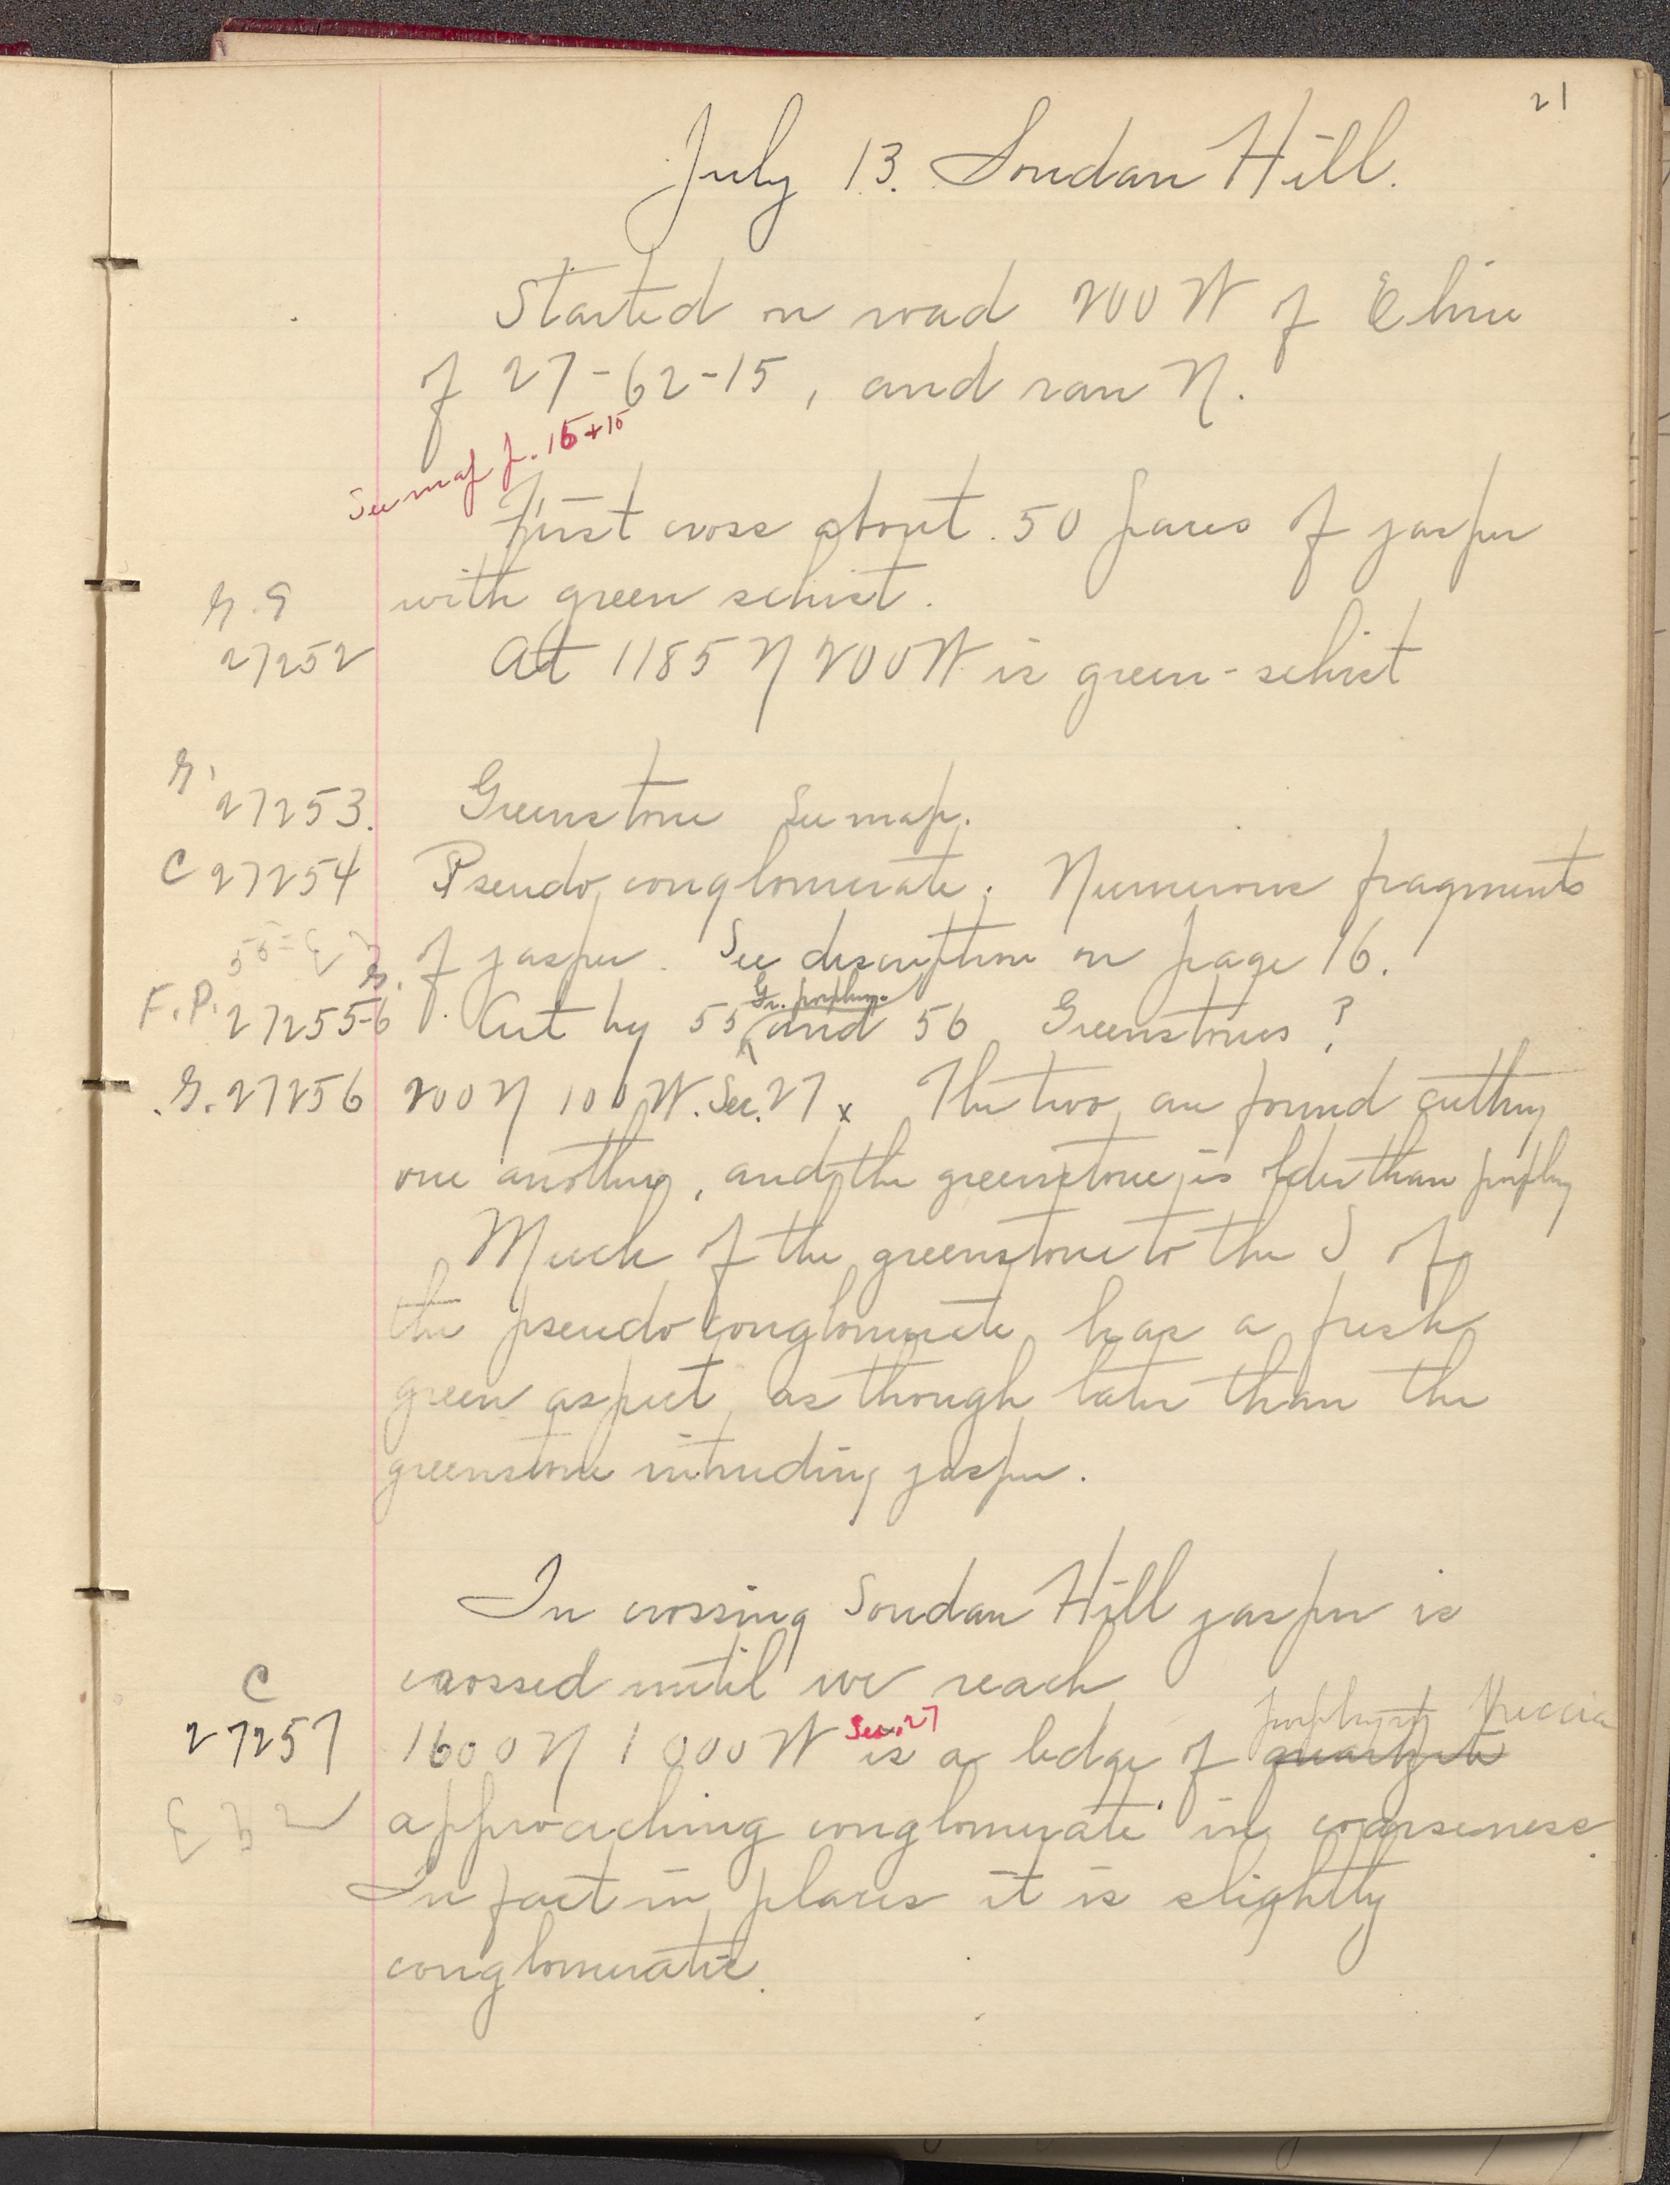 21
July 13. Soudan Hill.
Started on road 200 W of E line
of 27-62-15, and ran N.
See map p. 15+16
First cross about 50 paces of jasper
with green schist.
G.S
27252 At 1185 N 200 W is green-schist
G.
27253. Greenstone See map.
C 27254 Pseudo conglomerate. Numerous fragments
of jasper. See description on page 16.
Gr. porphyry
F.P. 27255-6 Cut by 55 and 56 Greenstones ?
G. 27256 200 N 100 W. Sec. 27 x The two are found cutting
one another, and the greenstone is older than porphry
Much of the greenstone to the S of
the pseudo conglomerate has a fresh
green aspect as though later than the
greenstone intruding jasper.
In crossing Soudan Hill jasper is
crossed until we reach
C
porphyry breccia
27257 1600 N 1000 W Sec. 27 is a ledge of quartzite
approaching conglomerate in coarseness.
In fact in places it is slightly
conglomeratic.